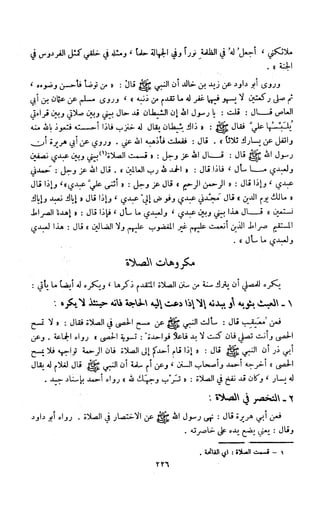 ملائكتي ، أجعل له في الظلمة نوراً وفي الجهالة حلماً ، ومثله في خلقي كمثل الفردوس في
الجنة » .
وروى أبو داود عن زيد بن خالد أن النبي ﷺ قال : « من توضأ فأحسن وضوءه ،
ثم صلى ركعتين لا يسهو فيهما غفر له ما تقدم من ذنبه » ، وروى مسلم عن عثمان بن أبي
العاص قال : قلت : يا رسول الله إن الشيطان قد حال بيني وبين صلاتي وبين قراءتي
يلبسها عليّ فقال ﷺ : « ذاك شيطان يقال له خنزب فإذا أحسسته فتعوذ بالله منه
واتفل عن يسارك ثلاثاً » . قال : ففعلت فأذهبه الله عني . وروي عن أبي هريرة أن
رسول الله ﷺ قال : قال الله عز وجل : « قسمت الصلاة(١) بيني وبين عبدي نصفين
ولعبدي ما سأل ، فإذا قال « الحمد لله رب العالمين » . قال الله عز وجل : حمدني
عبدي ، وإذا قال « الرحمن الرحيم » . قال عز وجل : « أثنى عليّ عبدي » ، وإذا قال
« مالك يوم الدين » قال : مجدني عبدي وفوض إليّ عبدي ، وإذا قال « إياك نعبد وإياك
نستعين » قال هذا بيني وبين عبدي ، ولعبدي ما سأل ، فإذا قال : « اهدنا الصراط
المستقيم صراط الذين أنعمت عليهم غير المغضوب عليهم ولا الضالين » قال : هذا لعبدي
ولعبدي ما سأل » .
مكروهات الصلاة
يكره للمصلي أن يترك سنة من سنن الصلاة المتقدم ذكرها ، ويكره له أيضاً ما يأتي :
١ - العبث بثوبه أو ببدنه إلا إذا دعت إليه الحاجة فإنه حينئذ لا يكره :
فعن معيقيب قال : سألت النبي ﷺ عن مسح الحصى في الصلاة فقال : « لا تمسح
الحصى وأنت تصلي فإن كنت لا بد فاعلاً فواحدة : تسوية الحصى » رواه الجماعة . وعن
أبي ذر أن النبي ﷺ قال : « إذا قام أحدكم إلى الصلاة فإن الرحمة تواجهه فلا يمسح
الحصى » أخرجه أحمد وأصحاب السنن ، وعن أم سلمة أن النبي ﷺ قال لغلام له يقال
له يسار ، وكان قد نفخ في الصلاة : « ترّب وجهك لله » رواه أحمد بإسناد جيد .
٢ - التخصر في الصلاة :
فعن أبي هريرة قال : نهى رسول الله ﷺ عن الاختصار في الصلاة . رواه أبو داود
وقال : يعني يضع يده على خاصرته .
١ - قسمت الصلاة : أي الفاتحة .
٢٢٦